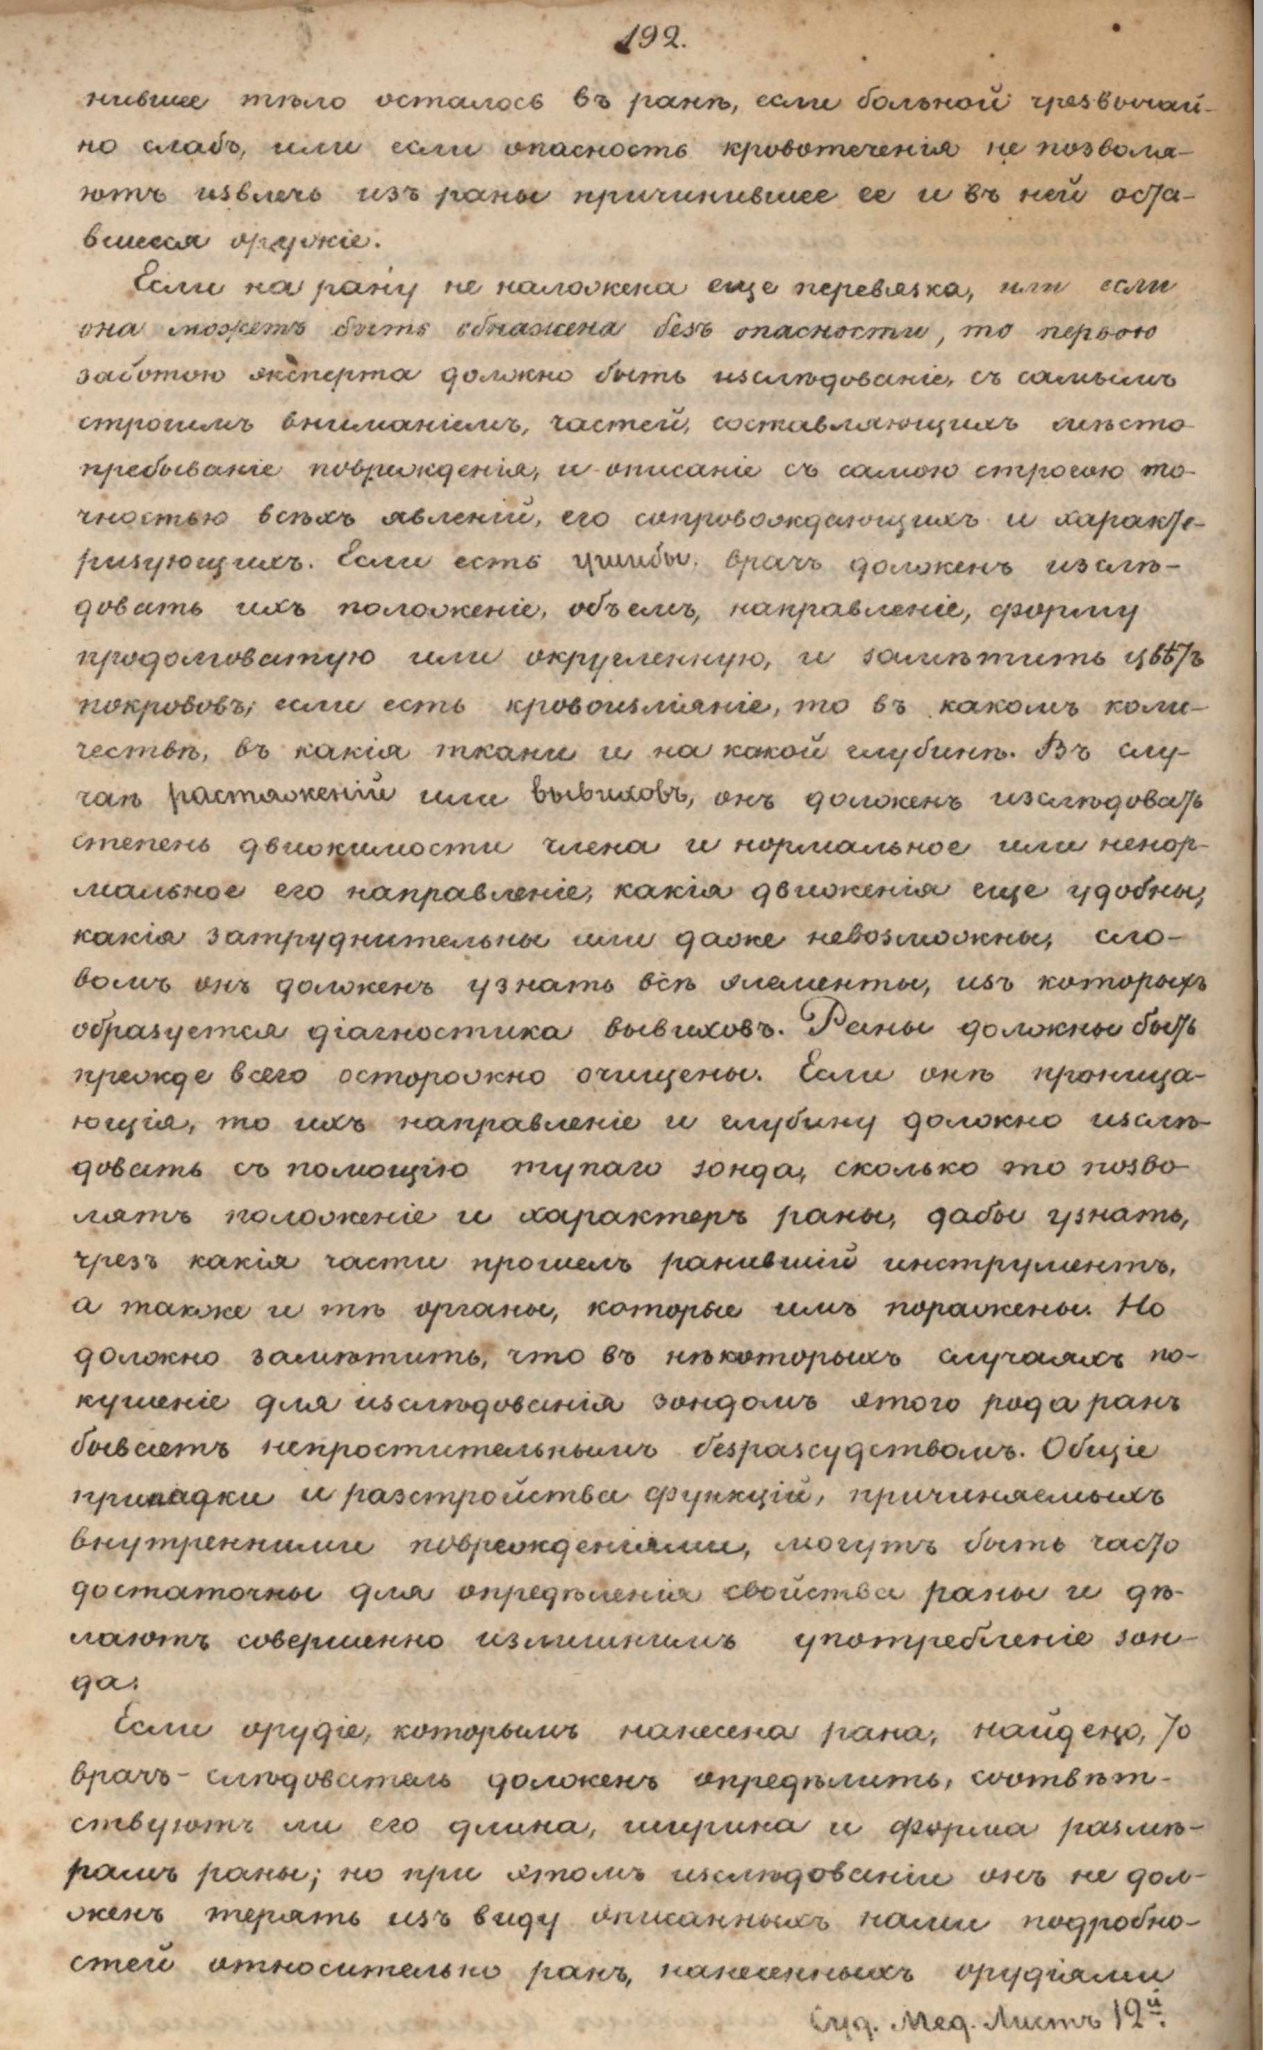 192.
нившее тѣло осталось въ ранѣ, если больной чрезвычай-
но слабъ, или если опасность кровотеченія не позволя-
ютъ извлечь изъ раны причинившее ее и въ ней оста-
вшееся оружіе.
Если на рану не наложена еще перевязка, или если
она можетъ быть обнажена безъ опасности, то первою
заботою эксперта должно быть изслѣдованіе, съ самымъ
строгимъ вниманіемъ, частей, составляющихъ мѣсто-
пребываніе поврежденія, и описаніе съ самою строгою то-
чностью всѣхъ явленій, его сопровождающихъ и характе-
ризующихъ. Если есть ушибы, врачъ долженъ изслѣ-
довать ихъ положеніе, объемъ, направленіе, форму
продолговатую или округленную, и замѣтить цвѣтъ
покрововъ; если есть кровоизліяніе, то въ какомъ коли-
чествѣ, въ какія ткани и на какой глубинѣ. Въ слу-
чаѣ растяженій или вывиховъ, онъ долженъ изслѣдовать
степень движимости члена и нормальное или ненор-
мальное его направленіе, какія движенія еще удобны,
какія затруднительны или даже невозможны, сло-
вомъ онъ долженъ узнать всѣ элементы, изъ которыхъ
образуется діагностика вывиховъ. Раны должны быть
прежде всего осторожно очищены. Если онѣ проница-
ющія, то ихъ направленіе и глубину должно изслѣ-
довать съ помощію тупаго зонда, сколько то позво-
лятъ положеніе и характеръ раны, дабы узнать,
чрезъ какія части прошелъ ранившій инструментъ,
а также и тѣ органы, которые имъ поражены. Но
должно замѣтить, что въ нѣкоторыхъ случаяхъ по-
кушеніе для изслѣдованія зондомъ этого рода ранъ
бываетъ непростительнымъ безразсудствомъ. Общіе
припадки и разстройства функцій, причиняемыхъ
внутренними поврежденіями, могутъ быть часто
достаточны для опредѣленія свойства раны и дѣ-
лаютъ совершенно излишнимъ употребленіе зон-
да.
Если орудіе, которымъ нанесена рана, найдено, то
врачъ-слѣдователь долженъ опредѣлить, соотвѣт-
ствуютъ ли его длина, ширина и форма размѣ-
рамъ раны; но при этомъ изслѣдованіи онъ не дол-
женъ терять изъ виду описанныхъ нами подробно-
стей относительно ранъ, нанесенныхъ орудіями
Суд. Мед. Листъ 12й.